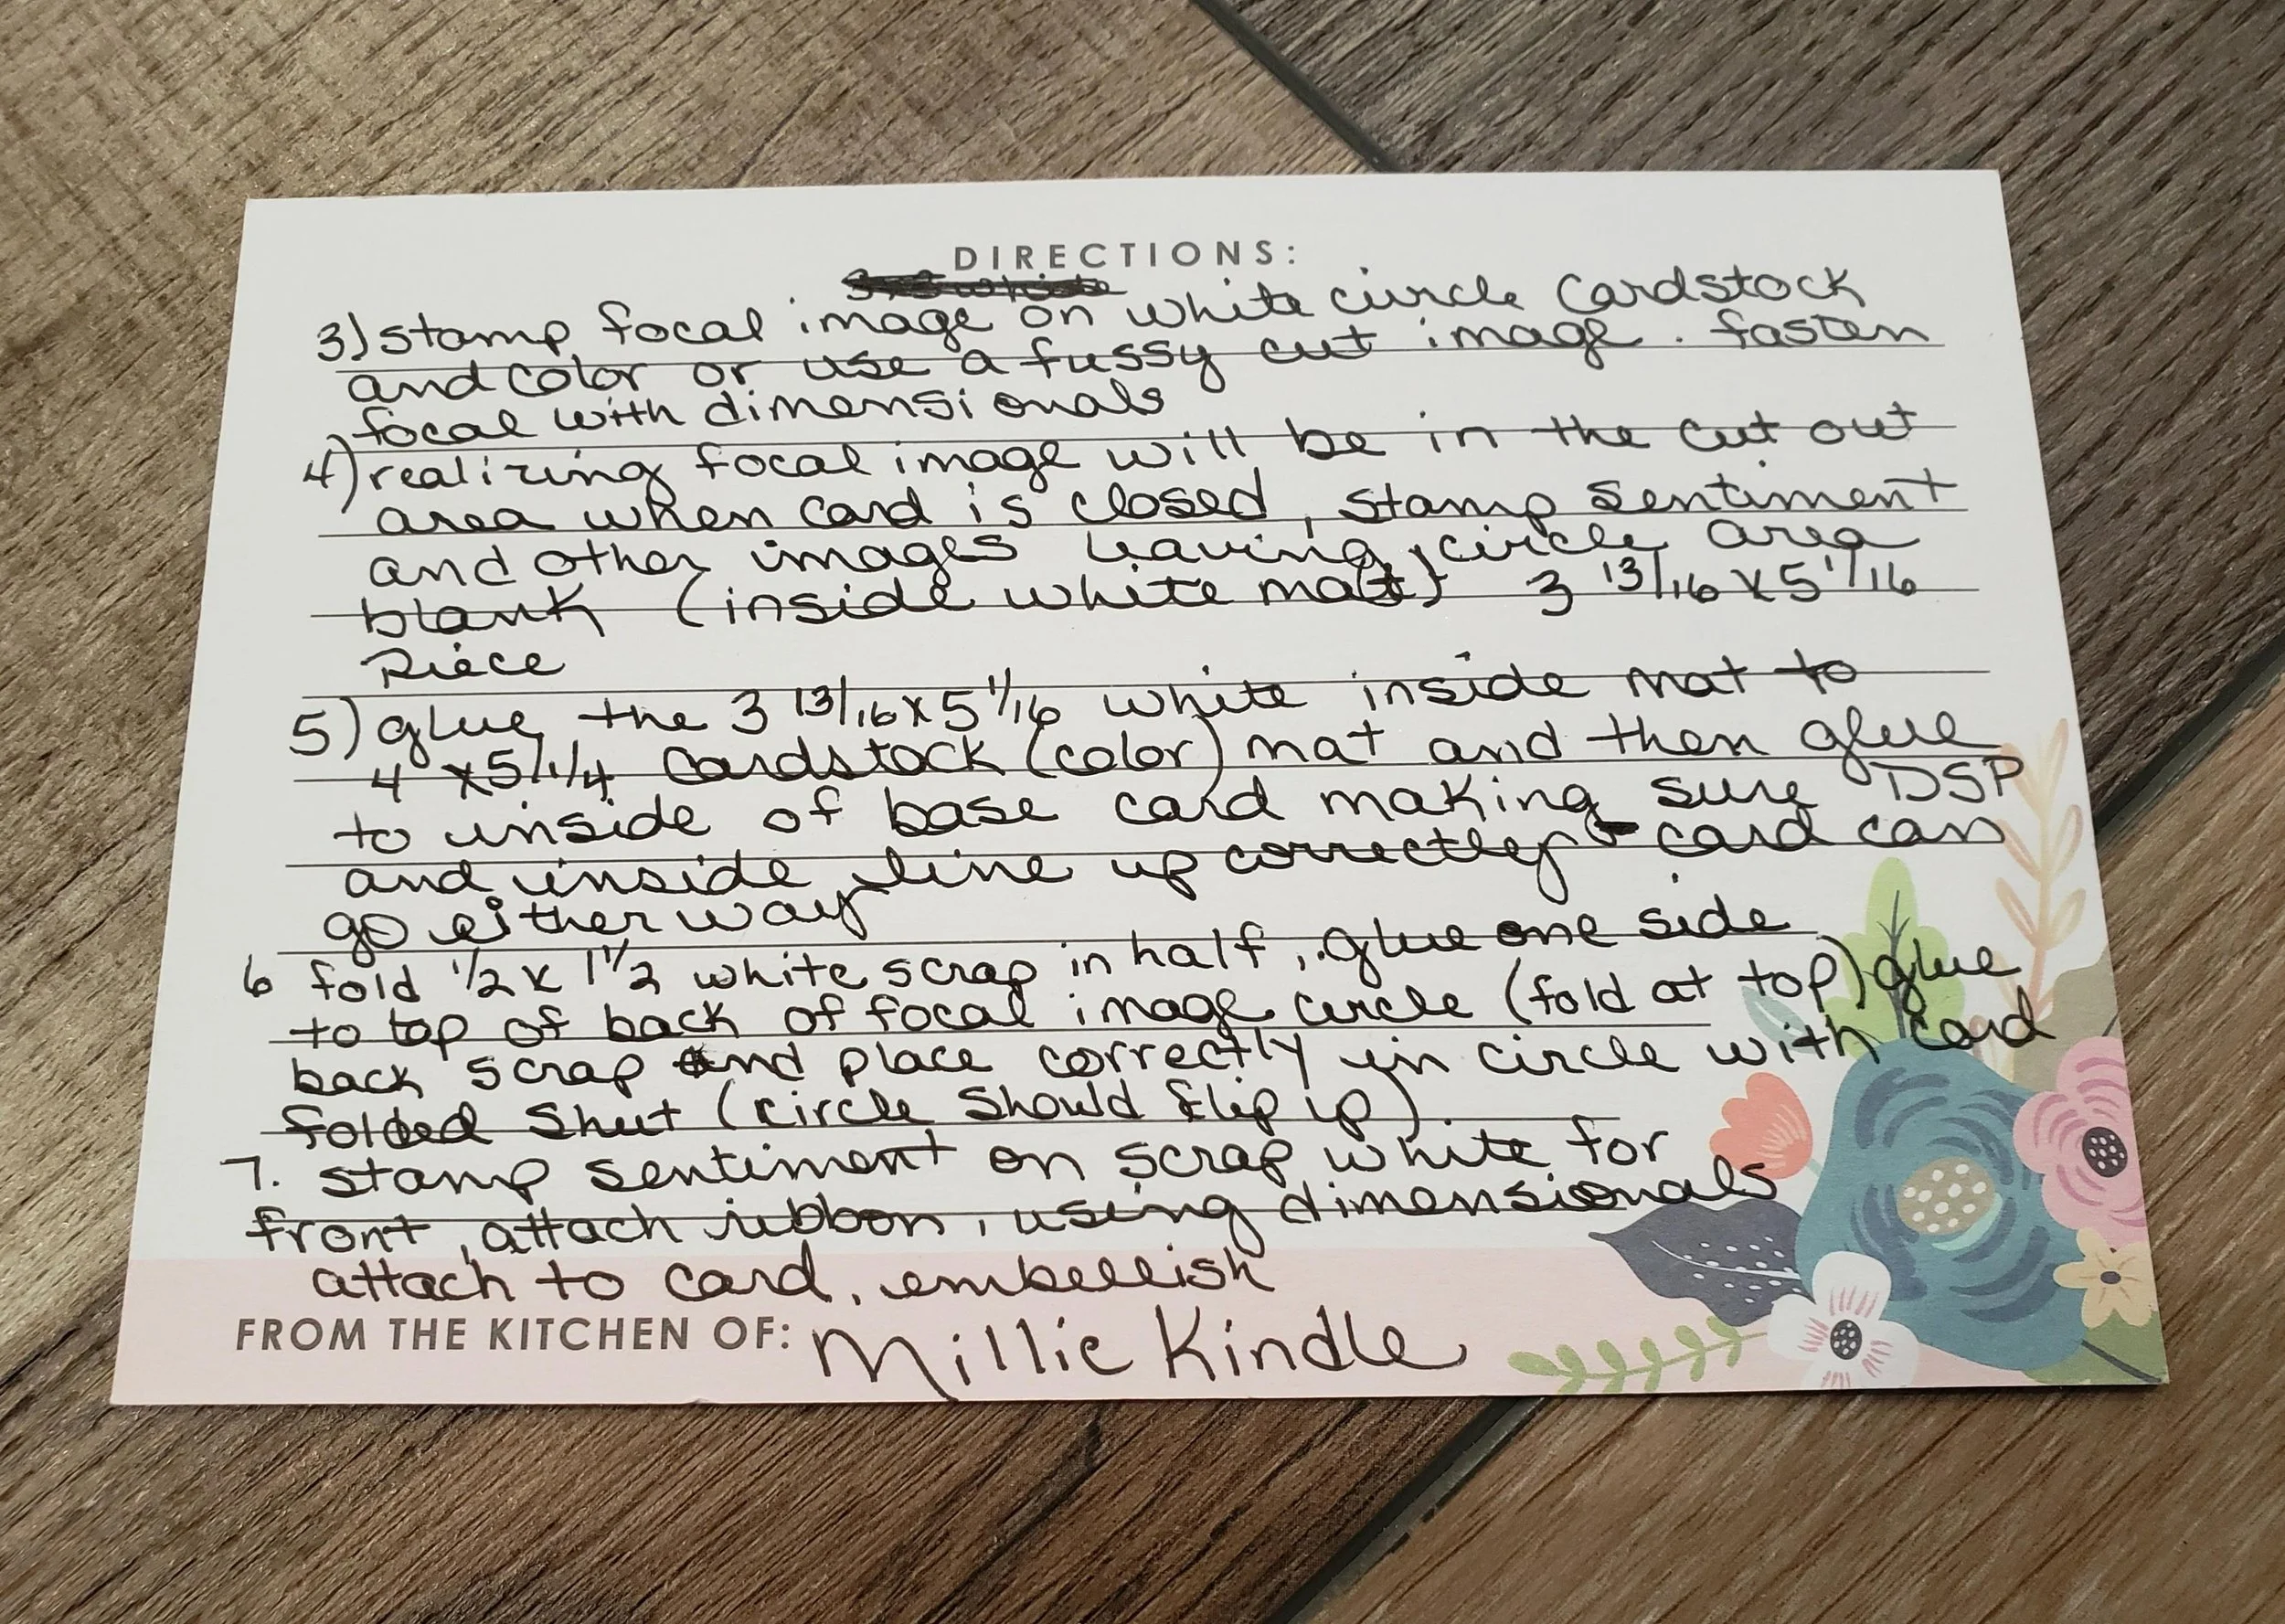 DIRECTIONS:
3) stamp focal image on white circle cardstock
and color or use a fussy cut image. fasten
focal with dimensionals
4) realizing focal image will be in the cut out
area when card is closed, stamp sentiment
and other images leaving circle area
blank (inside white mat) 3 13/16 x 5 1/16
Piece
5) glue the 3 13/16 x 5 1/16 white inside mat to
4 x 5 1/4 cardstock (color) mat and then glue
to inside of base card making sure DSP
and inside line up correctly - card can
go either way
6 fold 1/2 x 1 1/2 white scrap in half, glue one side
to top of back of focal image circle (fold at top) glue
back scrap and place correctly in circle with card
folded shut (circle should flip up)
7. stamp sentiment on scrap white for
front, attach ribbon, using dimensionals
attach to card, embellish
FROM THE KITCHEN OF: Millie Kindle